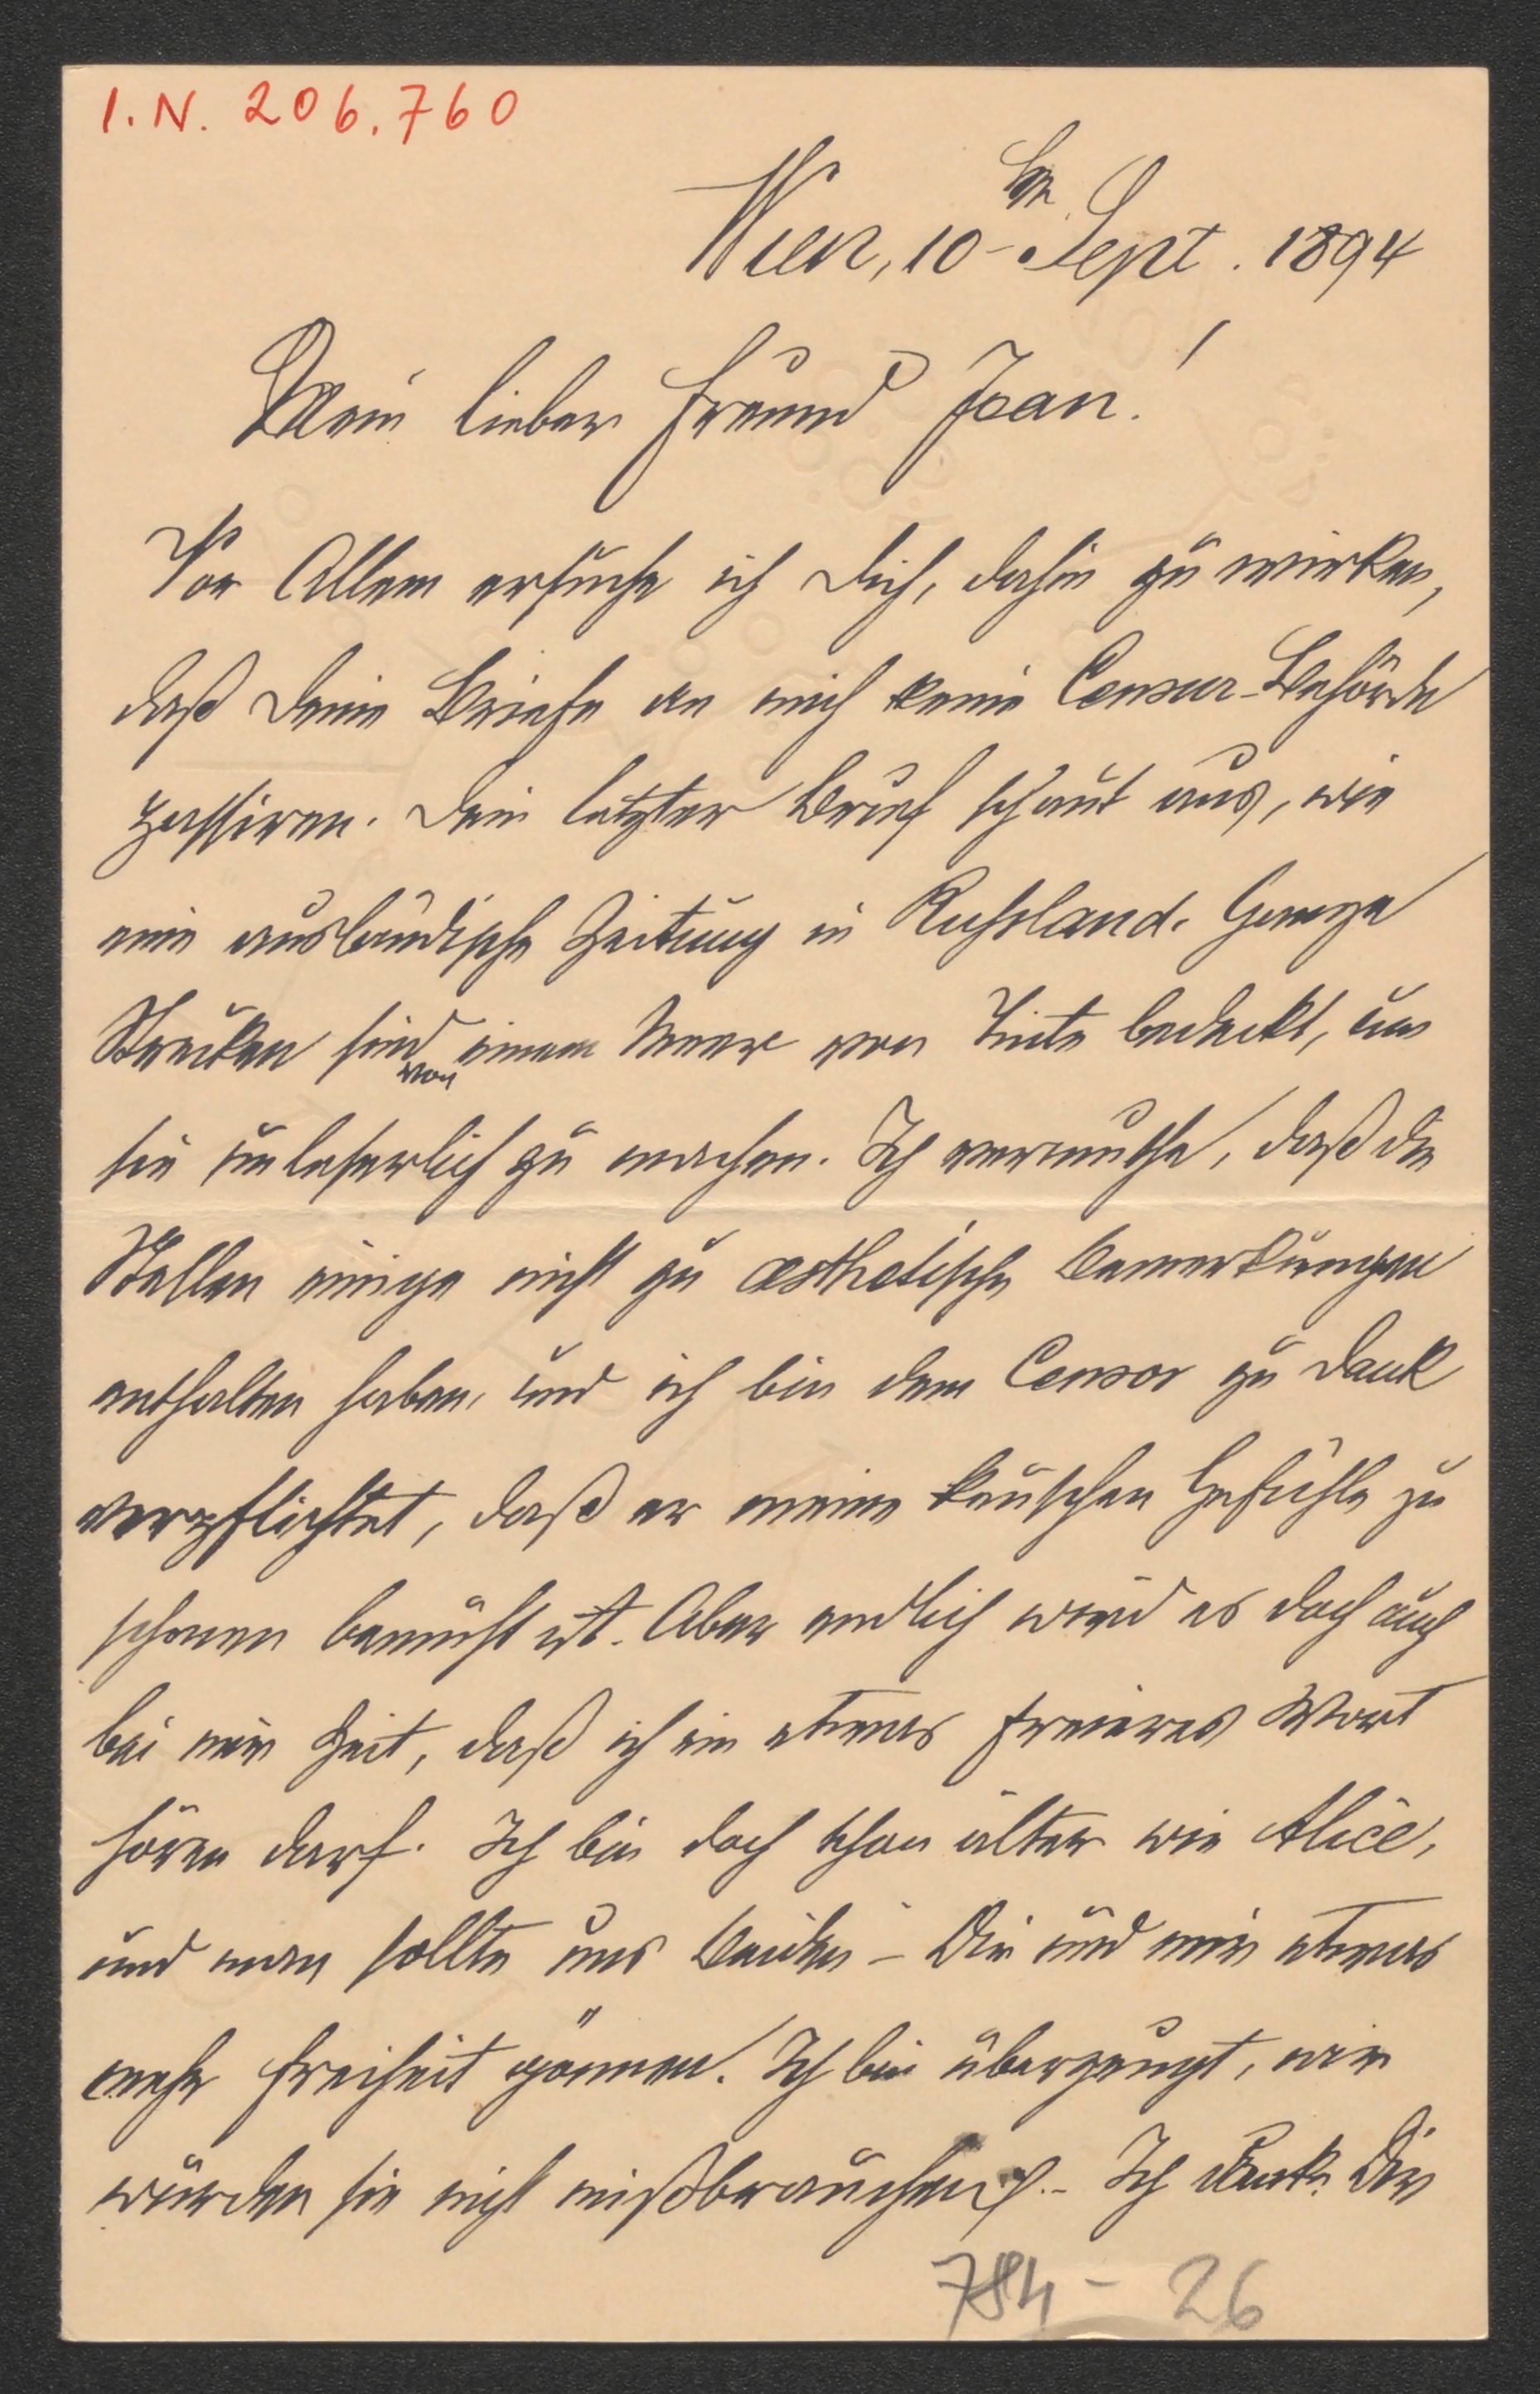 I.N. 206.760
Wien, 10ten Sept. 1894
Mein lieber Freund Jean!
Vor Allem ersuche ich Dich, dahin zu wirken,
daß Deine Briefe an mich keine Censur-Behörde
passiren. Dein letzter Brief schaut aus, wie
eine ausländische Zeitung in Russland. Ganze
Strecken sind von einem Meer von Tinte bedeckt, um
sie unleserlich zu machen. Ich vermuthe, daß die
Stellen einige nicht zu æsthetische Bemerkungen
enthalten haben, und ich bin dem Censor zu Dank
verpflichtet, daß er meine keuschen Gefühle zu
schonen bemüht ist. Aber endlich wird es doch auch
bei mir Zeit, daß ich ein etwas freieres Wort
hören darf. Ich bin doch schon älter wie Alice,
und man sollte uns Beiden – Dir und mir etwas
mehr Freiheit gönnen. Ich bin überzeugt, wir
würden sie nicht mißbrauchen. – Ich danke Dir
784 – 26